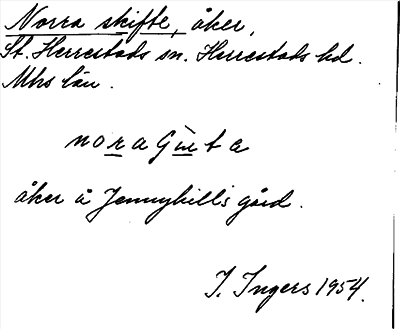 Norra skifte, åker,
St. Herrestads sn. Herrestads hd.
Mhs län.
åker å Jennyhills gård.
I. Ingers 1954.